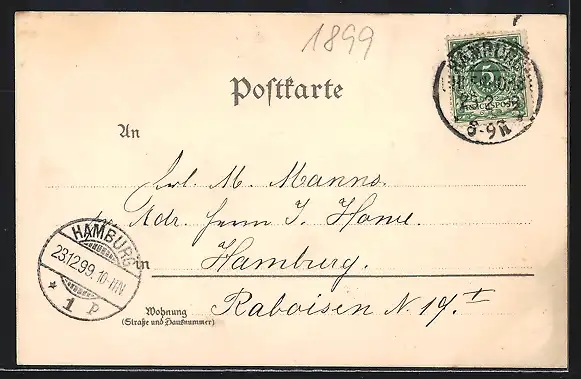 1899
REICHSPOST
5
HAMBURG
8-9N
Postkarte
An
Frl. M. Manns.
Adr. Herrn J. Howe.
HAMBURG
23.12.99. 10-11N
* 1 P
in Hamburg.
Wohnung Raboisen N. 19. I
(Straße und Hausnummer)